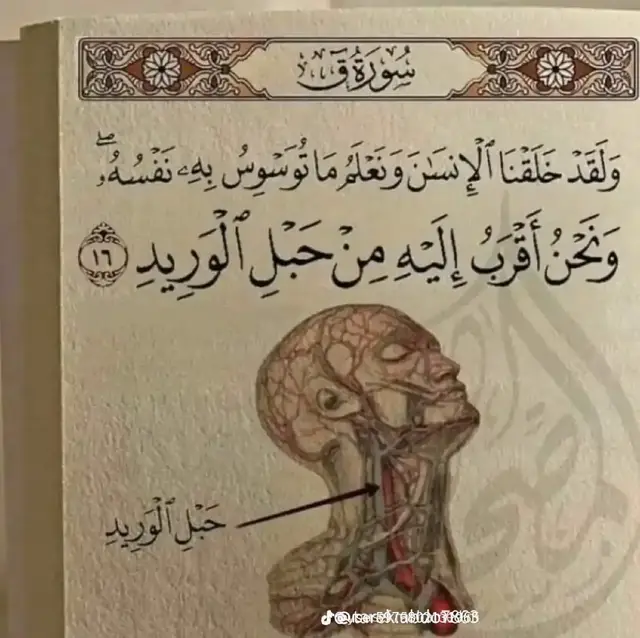 سُورَةُ قٓ
وَلَقَدْ خَلَقْنَا ٱلْإِنسَٰنَ وَنَعْلَمُ مَا تُوَسْوِسُ بِهِۦ نَفْسُهُۥ ۖ
وَنَحْنُ أَقْرَبُ إِلَيْهِ مِنْ حَبْلِ ٱلْوَرِيدِ ١٦
حَبْلِ ٱلْوَرِيدِ